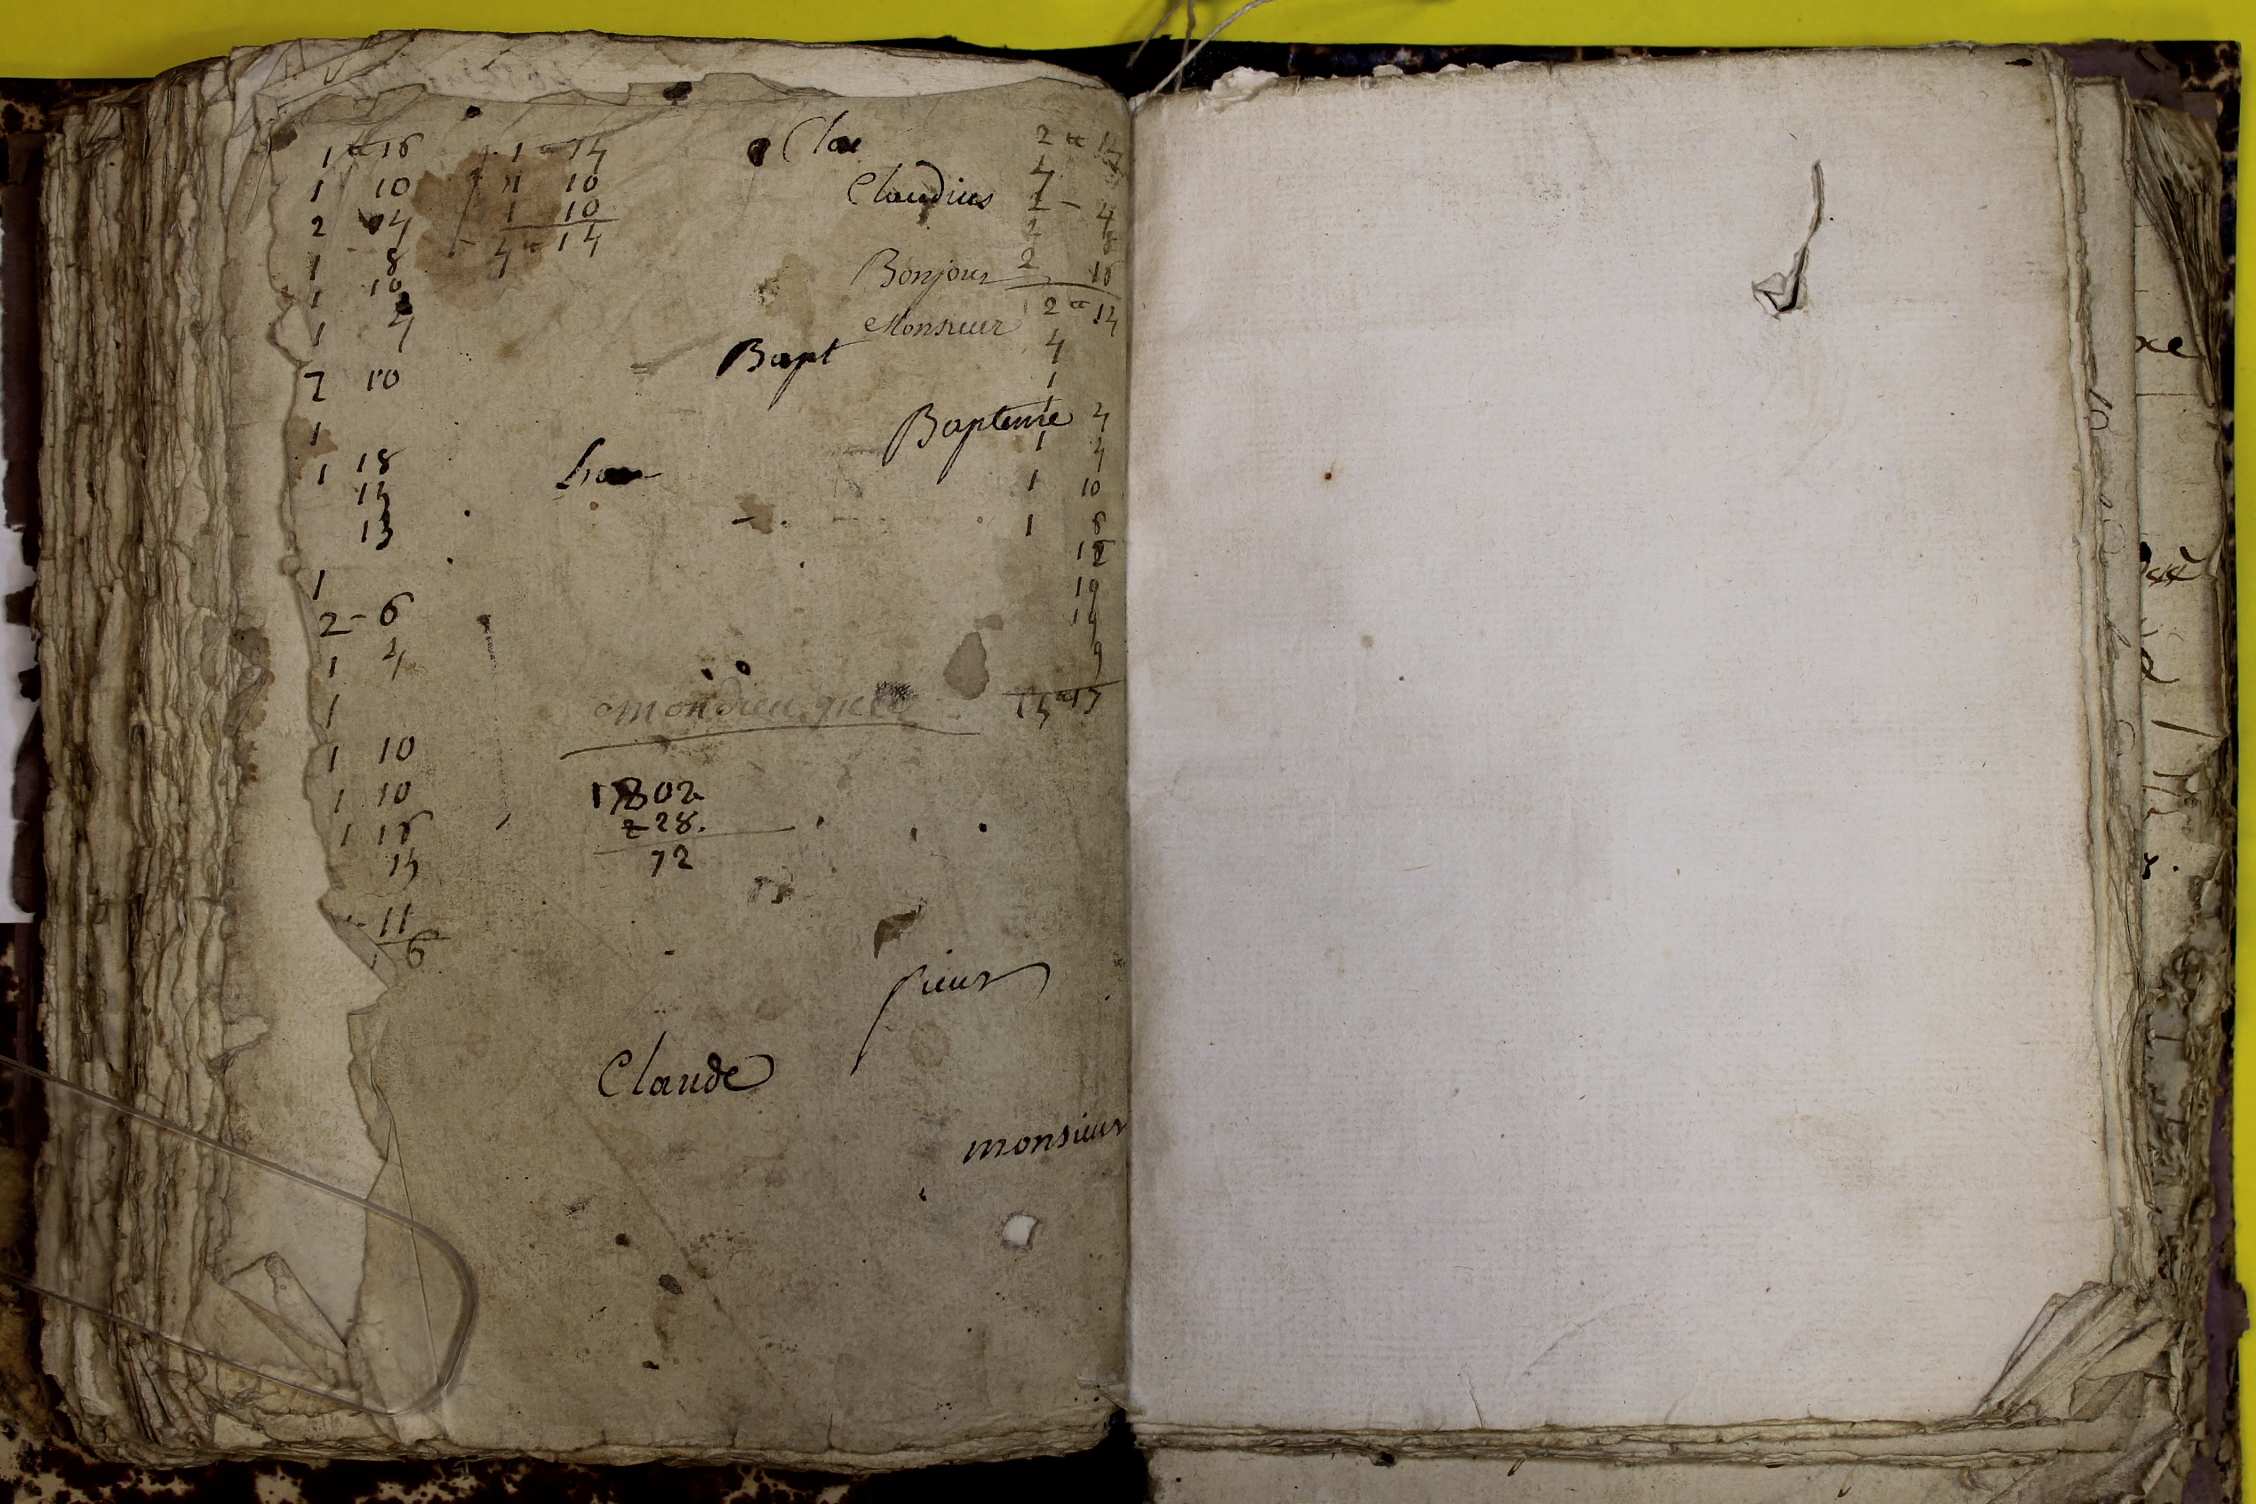 1 " 16
1 10
2 4
1 8
1 10
1 4
7 10
1
1 18
14
13
1
2 - 6
1 4
1
1 10
1 10
1 16
14
11
6
1 " 14
1 10
1 10
4 " 14
Clau
Claudius
Bonjour
Monsieur
Bapt
Bapteme
2 " 14
4
2 - 4
2 8
2 16
12 " 14
4
1
1 4
1 4
1 10
1 8
12
19
19
9
mon dieu que
1802
228.
72
sieur
Claude
monsieur